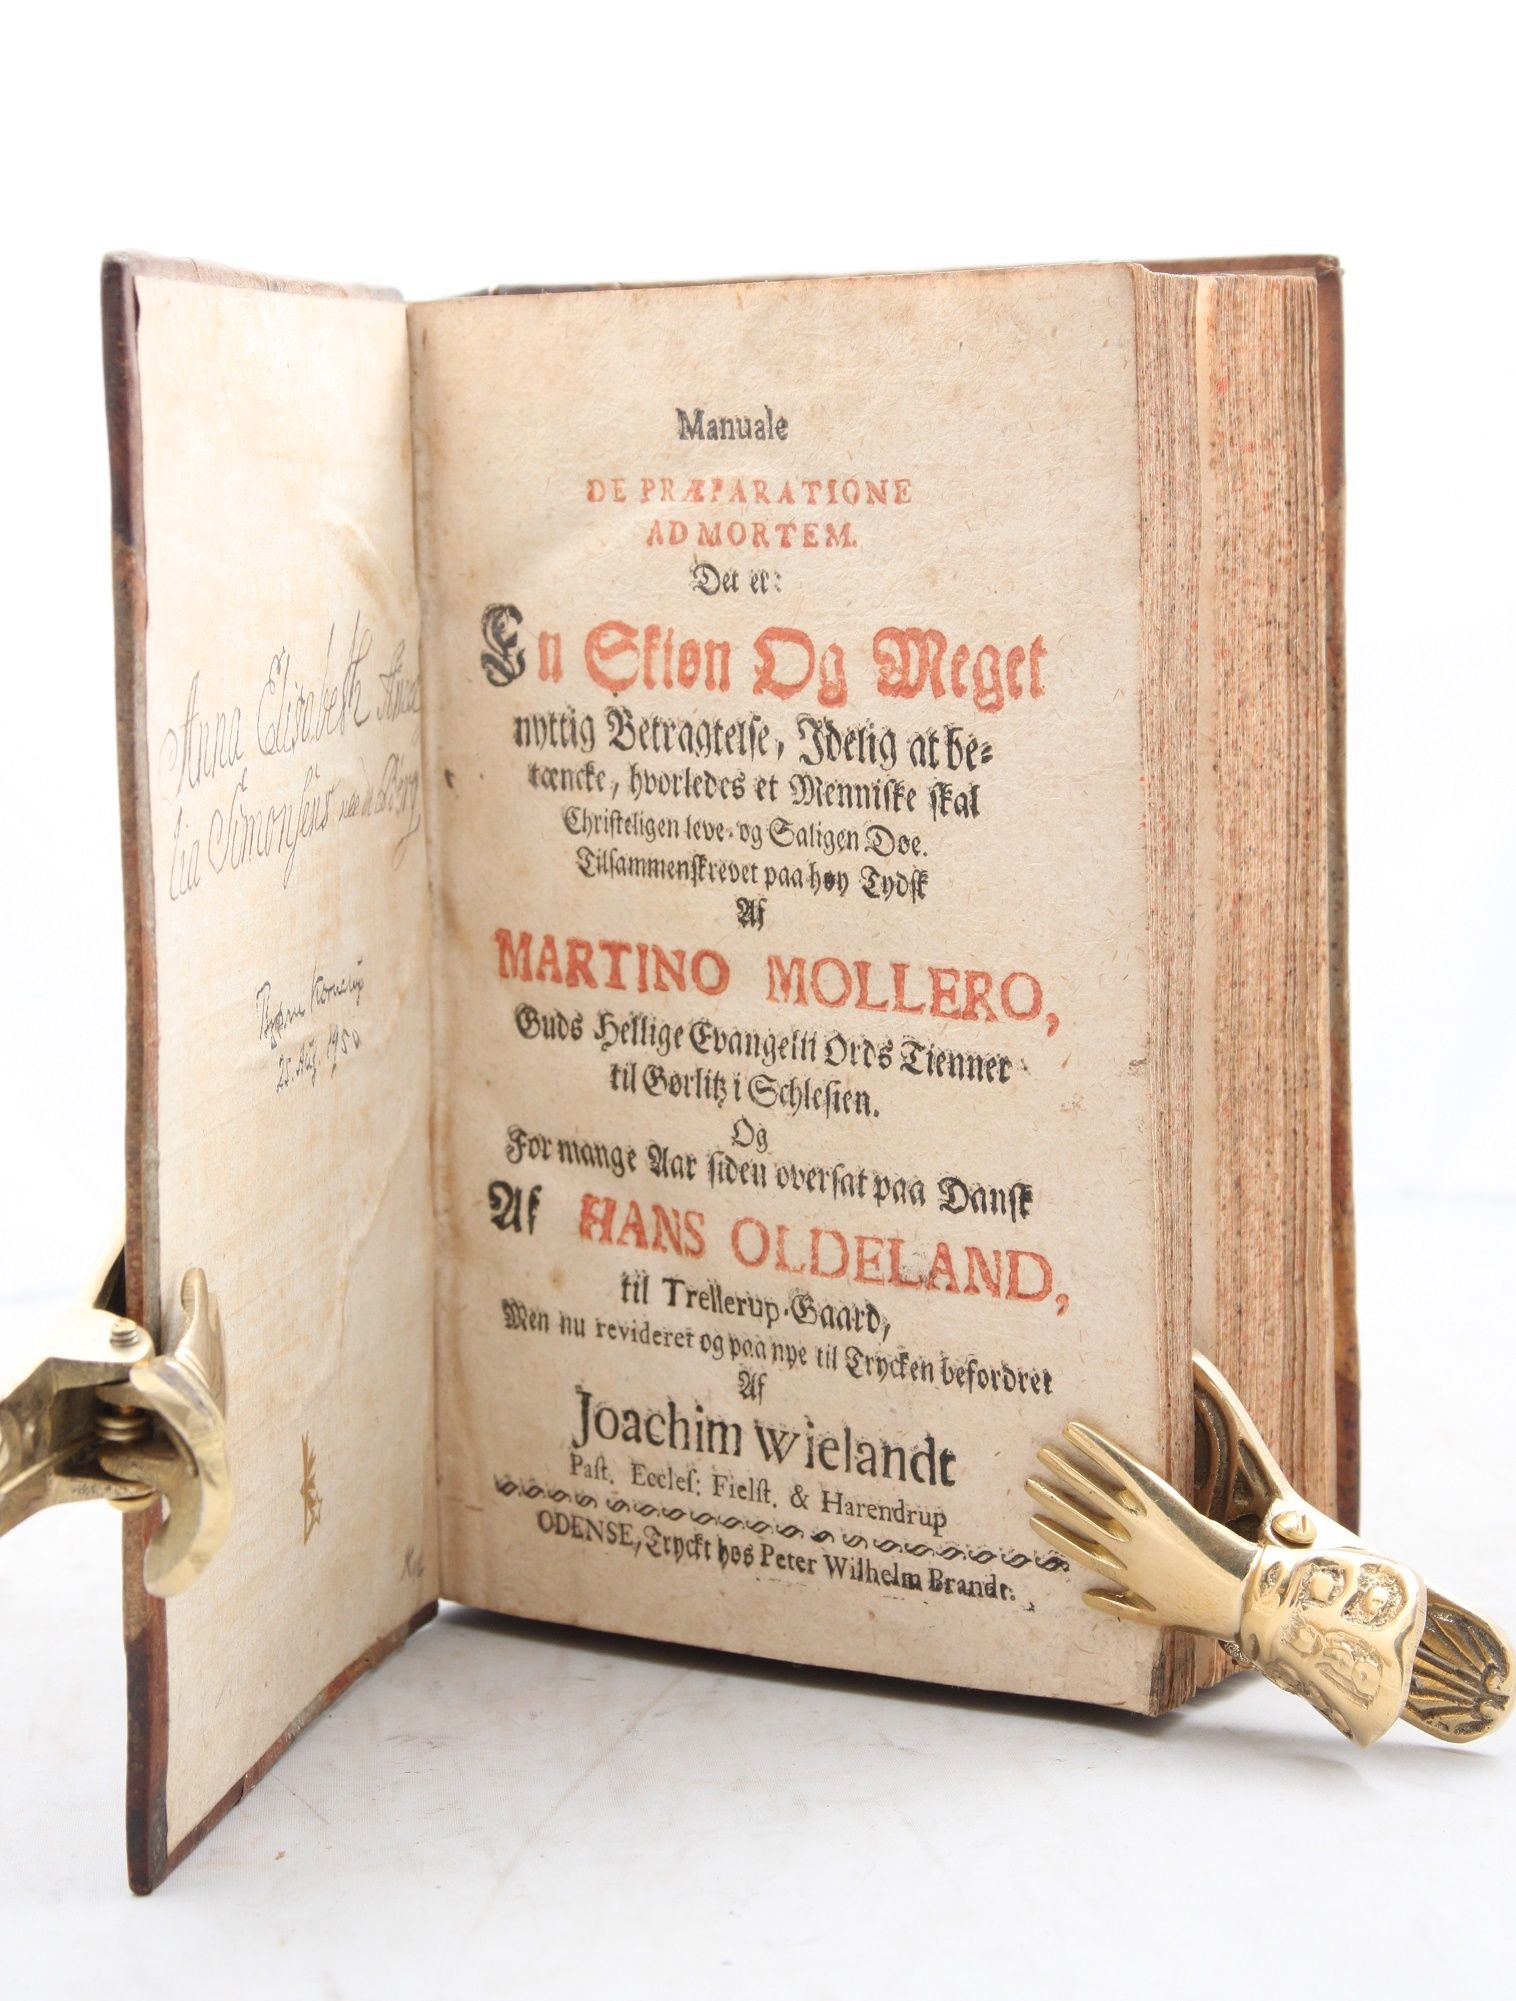 Anna Elisabeth
lia Simonsens
Bjørn Kornerup
25. Aug. 1950.
Manuale
DE PRÆPARATIONE
AD MORTEM.
Det er:
En Skiøn Og Meget
nyttig Betragtelse, Idelig at be-
tæncke, hvorledes et Menniske skal
Christeligen leve- og Saligen Døe.
Tilsammenskrevet paa høy Tydsk
Af
MARTINO MOLLERO,
Guds Hellige Evangelii Ords Tienner
til Gørlitz i Schlesien.
Og
For mange Aar siden oversat paa Dansk
Af HANS OLDELAND,
til Trellerup-Gaard,
Men nu revideret og paa nye til Trycken befordret
Af
Joachim Wielandt
Past. Eccles: Fielst. & Harendrup
ODENSE, Tryckt hos Peter Wilhelm Brandt.